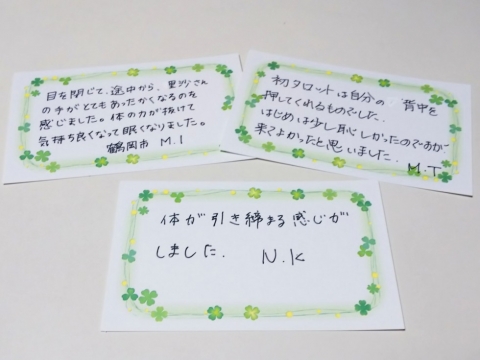 目を閉じて、途中から、里沙さん
の手がとてもあったかくなるのを
感じました。体の力が抜けて
気持ち良くなって眠くなりました。
鶴岡市 M.I
初タロットは自分の 背中を
押してくれるものでした。
はじめは少し恥しかったのですが
来てよかったと思いました。
M.T
体が引き締まる感じが
しました. N.K